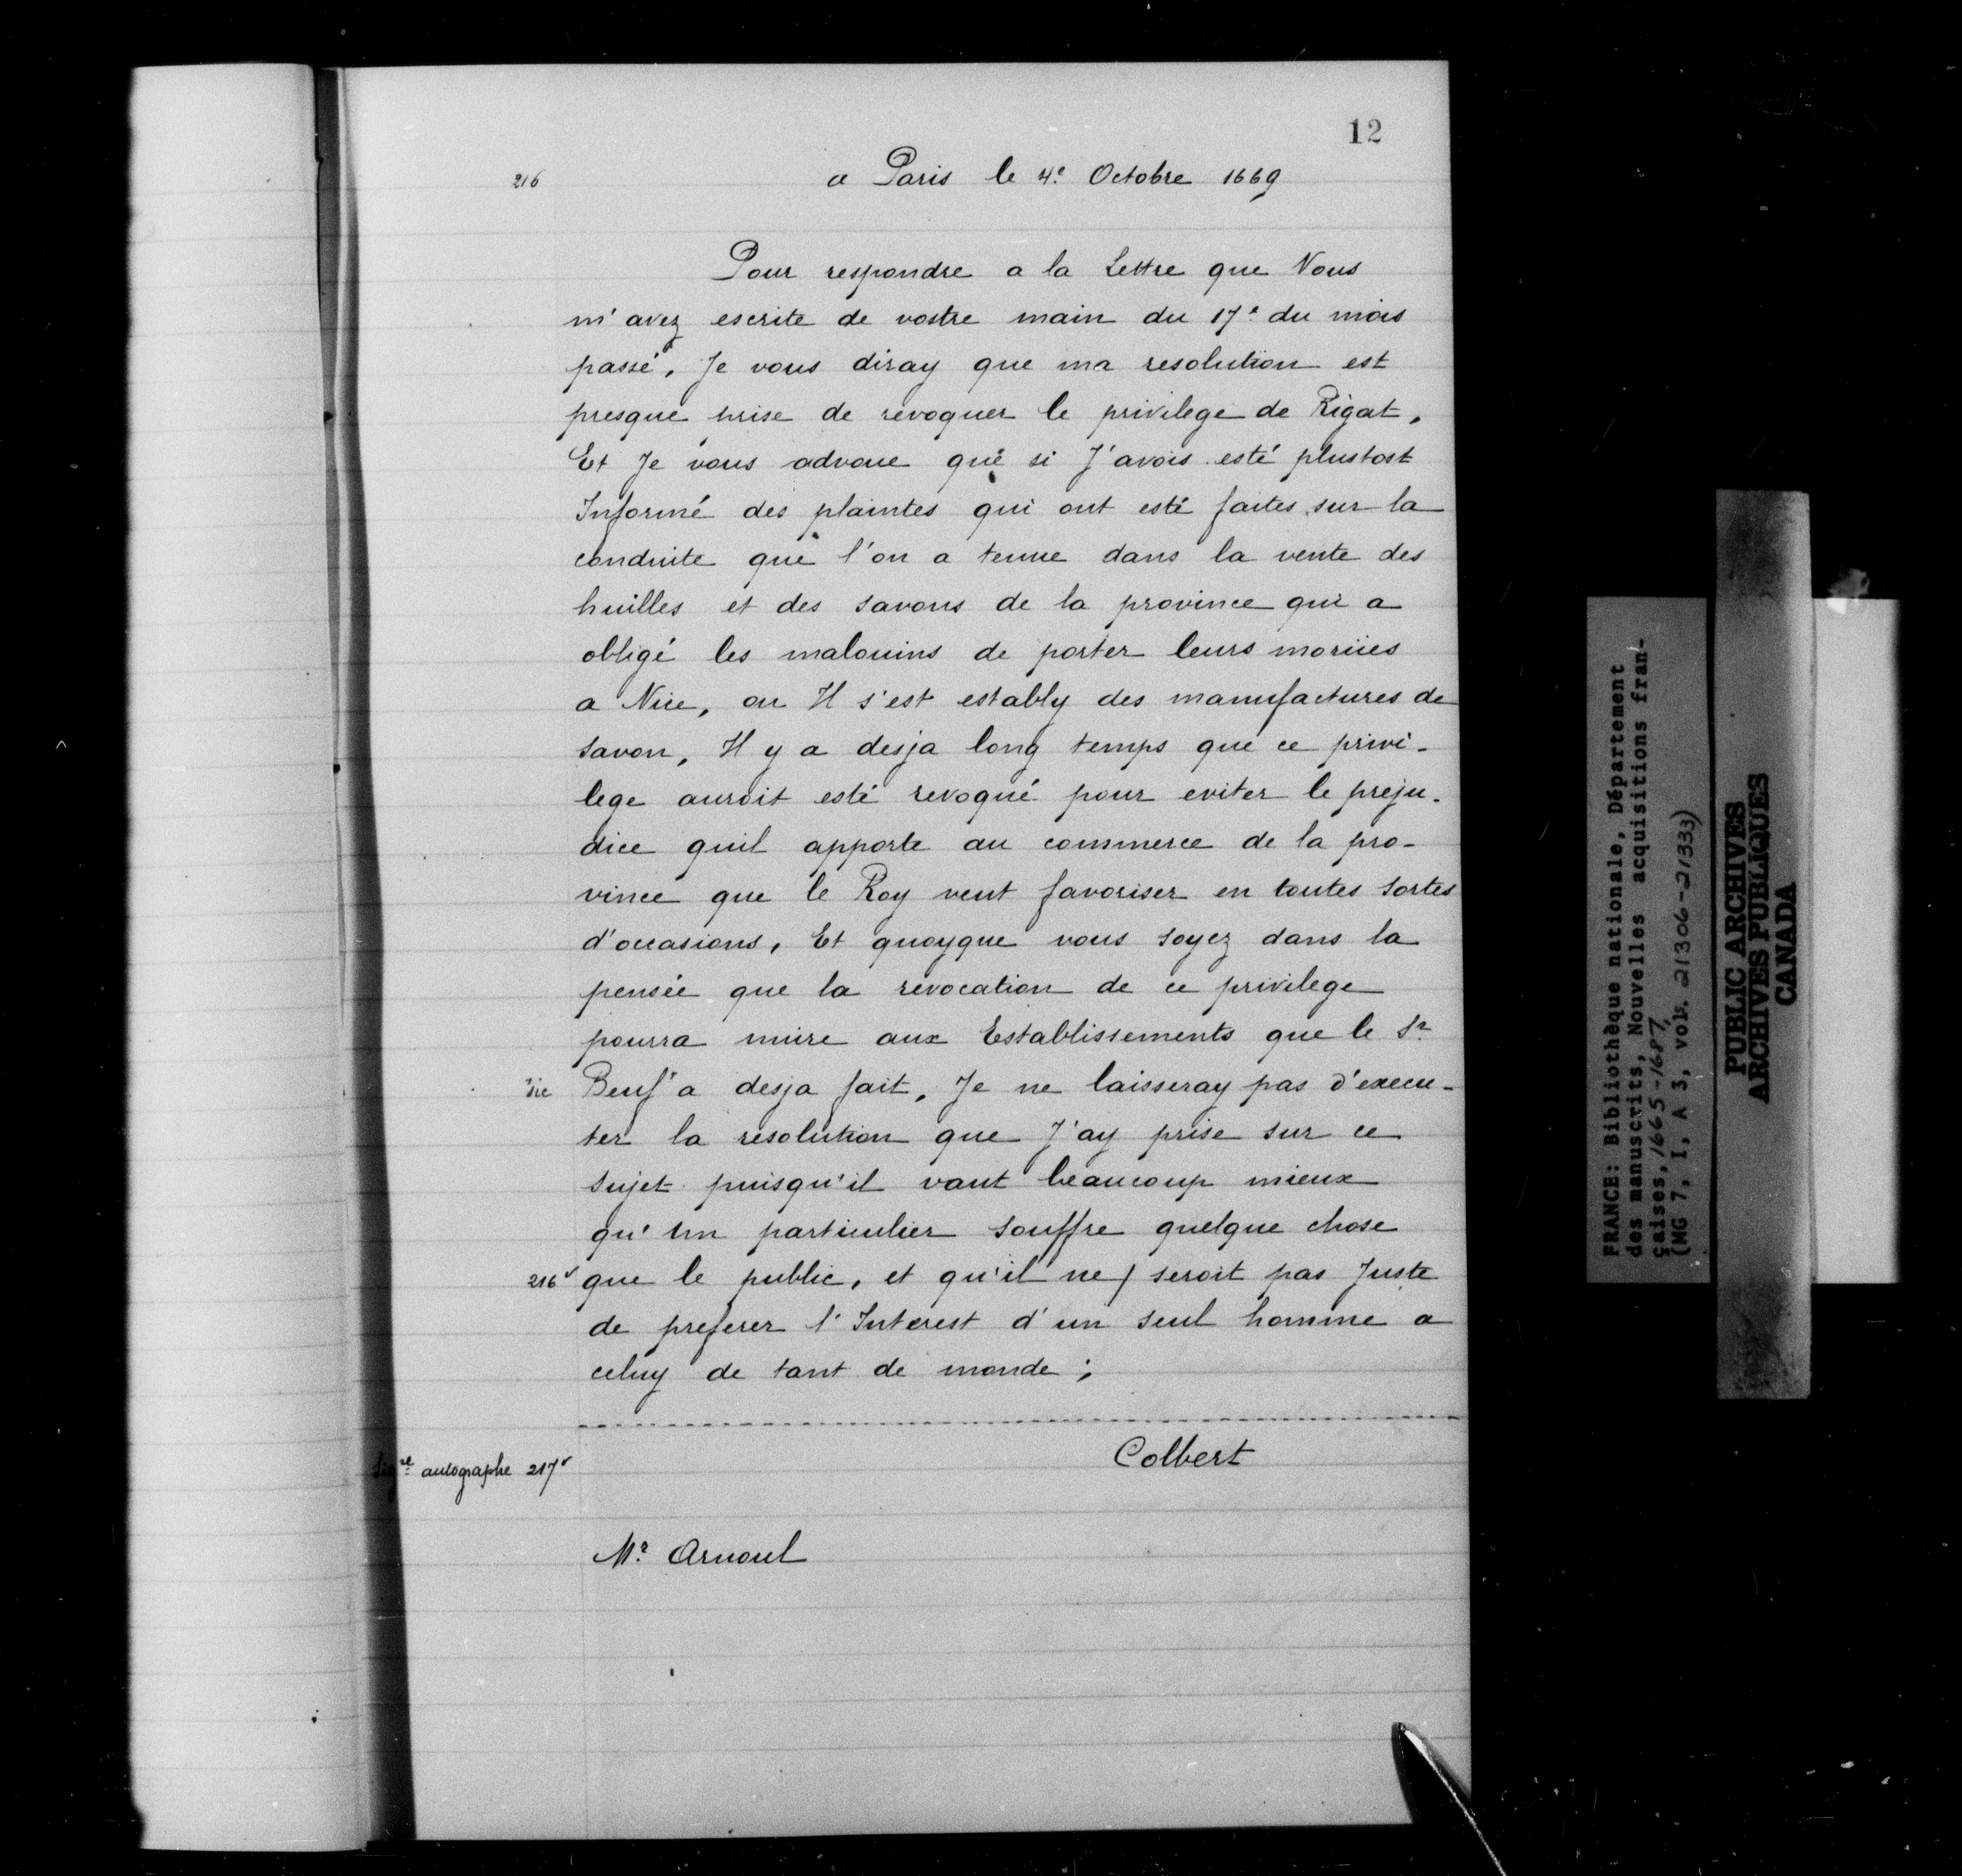 12
216
a Paris le 4e Octobre 1669
Pour respondre a la Lettre que Vous
m'avez escrite de vostre main du 17e du mois
passé, Je vous diray que ma resolution est
presque prise de revoquer le privilege de Rigat,
Et Je vous advoue que si J'avois esté plustost
Informé des plaintes qui ont esté faites sur la
conduite que l'on a tenue dans la vente des
huilles et des savons de la province qui a
obligé les malouins de porter leurs moriies
a Nice, ou Il s'est estably des manufactures de
savon, Il y a desja long temps que ce privi-
lege auroit esté revoqué pour eviter le preju-
dice quil apporte au commerce de la pro-
vince que le Roy veut favoriser en toutes sortes
d'occasions, Et quoyque vous soyez dans la
pensée que la revocation de ce privilege
pourra nuire aux Establissements que le Sr
sic Beuf a desja fait, Je ne laisseray pas d'execu-
ter la resolution que J'ay prise sur ce
sujet puisqu'il vaut beaucoup mieux
qu'un particulier souffre quelque chose
216v que le public, et qu'il ne / seroit pas Juste
de preferer l'Interest d'un seul homme a
celuy de tant de monde;
Colbert
Sigre autographe 217v
Mr Arnoul
FRANCE: Bibliothèque nationale, Département
des manuscrits, Nouvelles acquisitions fran-
çaises, 1665-1687
(MG 7, I, A 3, vols. 21306-21333)
PUBLIC ARCHIVES
ARCHIVES PUBLIQUES
CANADA